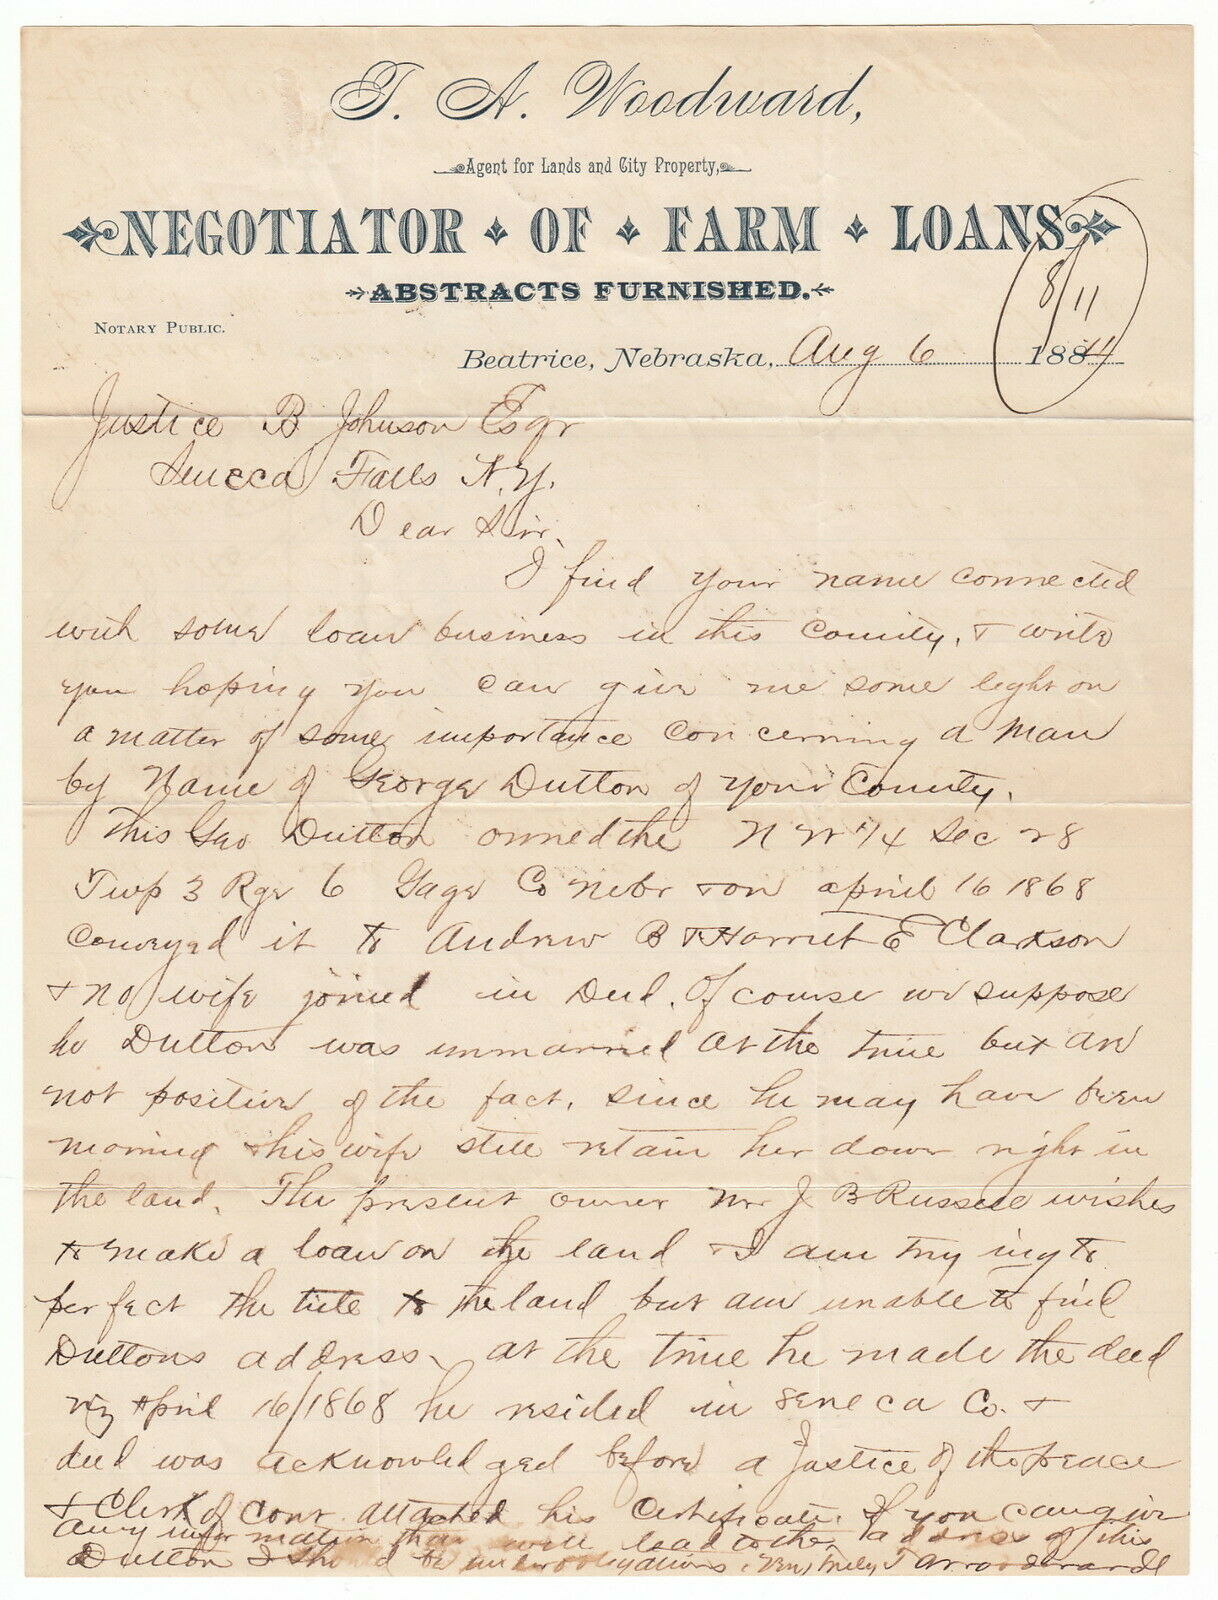 T. A. Woodward,
Agent for Lands and City Property,
NEGOTIATOR OF FARM LOANS
ABSTRACTS FURNISHED.
8/11
NOTARY PUBLIC.
Beatrice, Nebraska, Aug 6 1884
Justice B Johnson Esqr
Senecca Falls N.Y.
Dear Sir.
I find your name connected
with some loan business in this County, & write
you hoping you can give me some light on
a matter of some importance concerning a man
by Name of George Dutton of your County.
This Geo Dutton owned the N W 1/4 Sec 28
Twp 3 Rge 6 Gage Co Nebr & on april 16 1868
Conveyed it to Andrew B & Harriet E Clarkson
& no wife joined in Deed. Of course we suppose
he Dutton was unmarried at the time but are
not positive of the fact. since he may have been
married & his wife still retain her dower right in
the land. The present owner Mr J B Russell wishes
to make a loan on the land & I am trying to
perfect the title to the land but am unable to find
Duttons address. at the time he made the deed
viz April 16/1868 he resided in Seneca Co. &
deed was acknowledged before a Justice of the peace
& Clerk of Court attached his Certificate. If you can give
any information that will lead to the address of this
Dutton I should be under obligations. Very truly T A Woodward